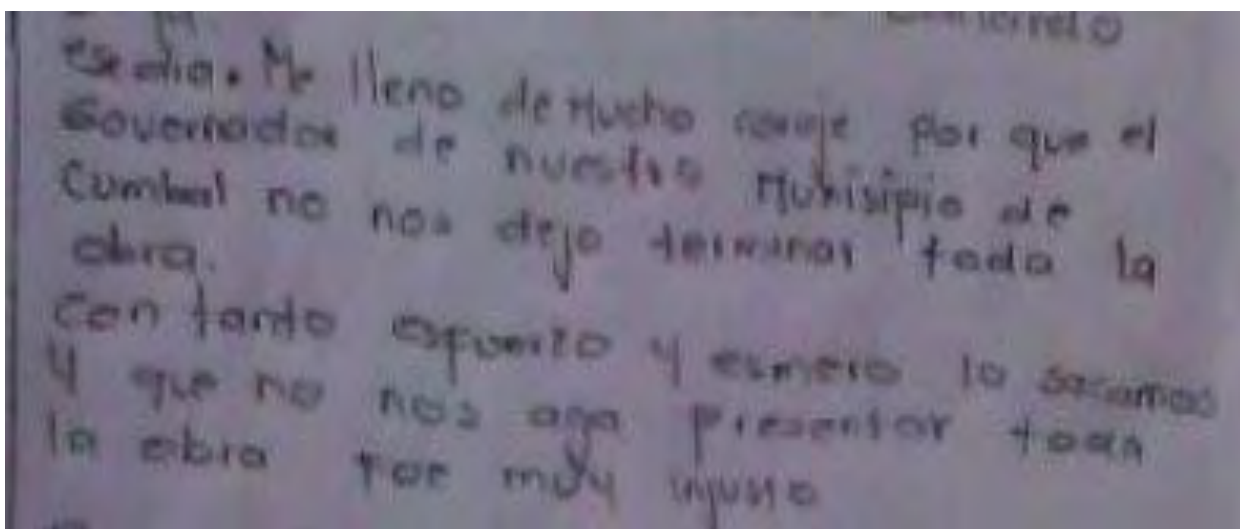 ese dia. Me lleno de Mucho coraje por que el
Governador de nuestro Munisipio de
Cumbal no nos dejo terminar toda la
obra.
Con tanto esfuerzo y esmero lo sacamos
Y que no nos aga presentar toda
la obra fue muy injusto